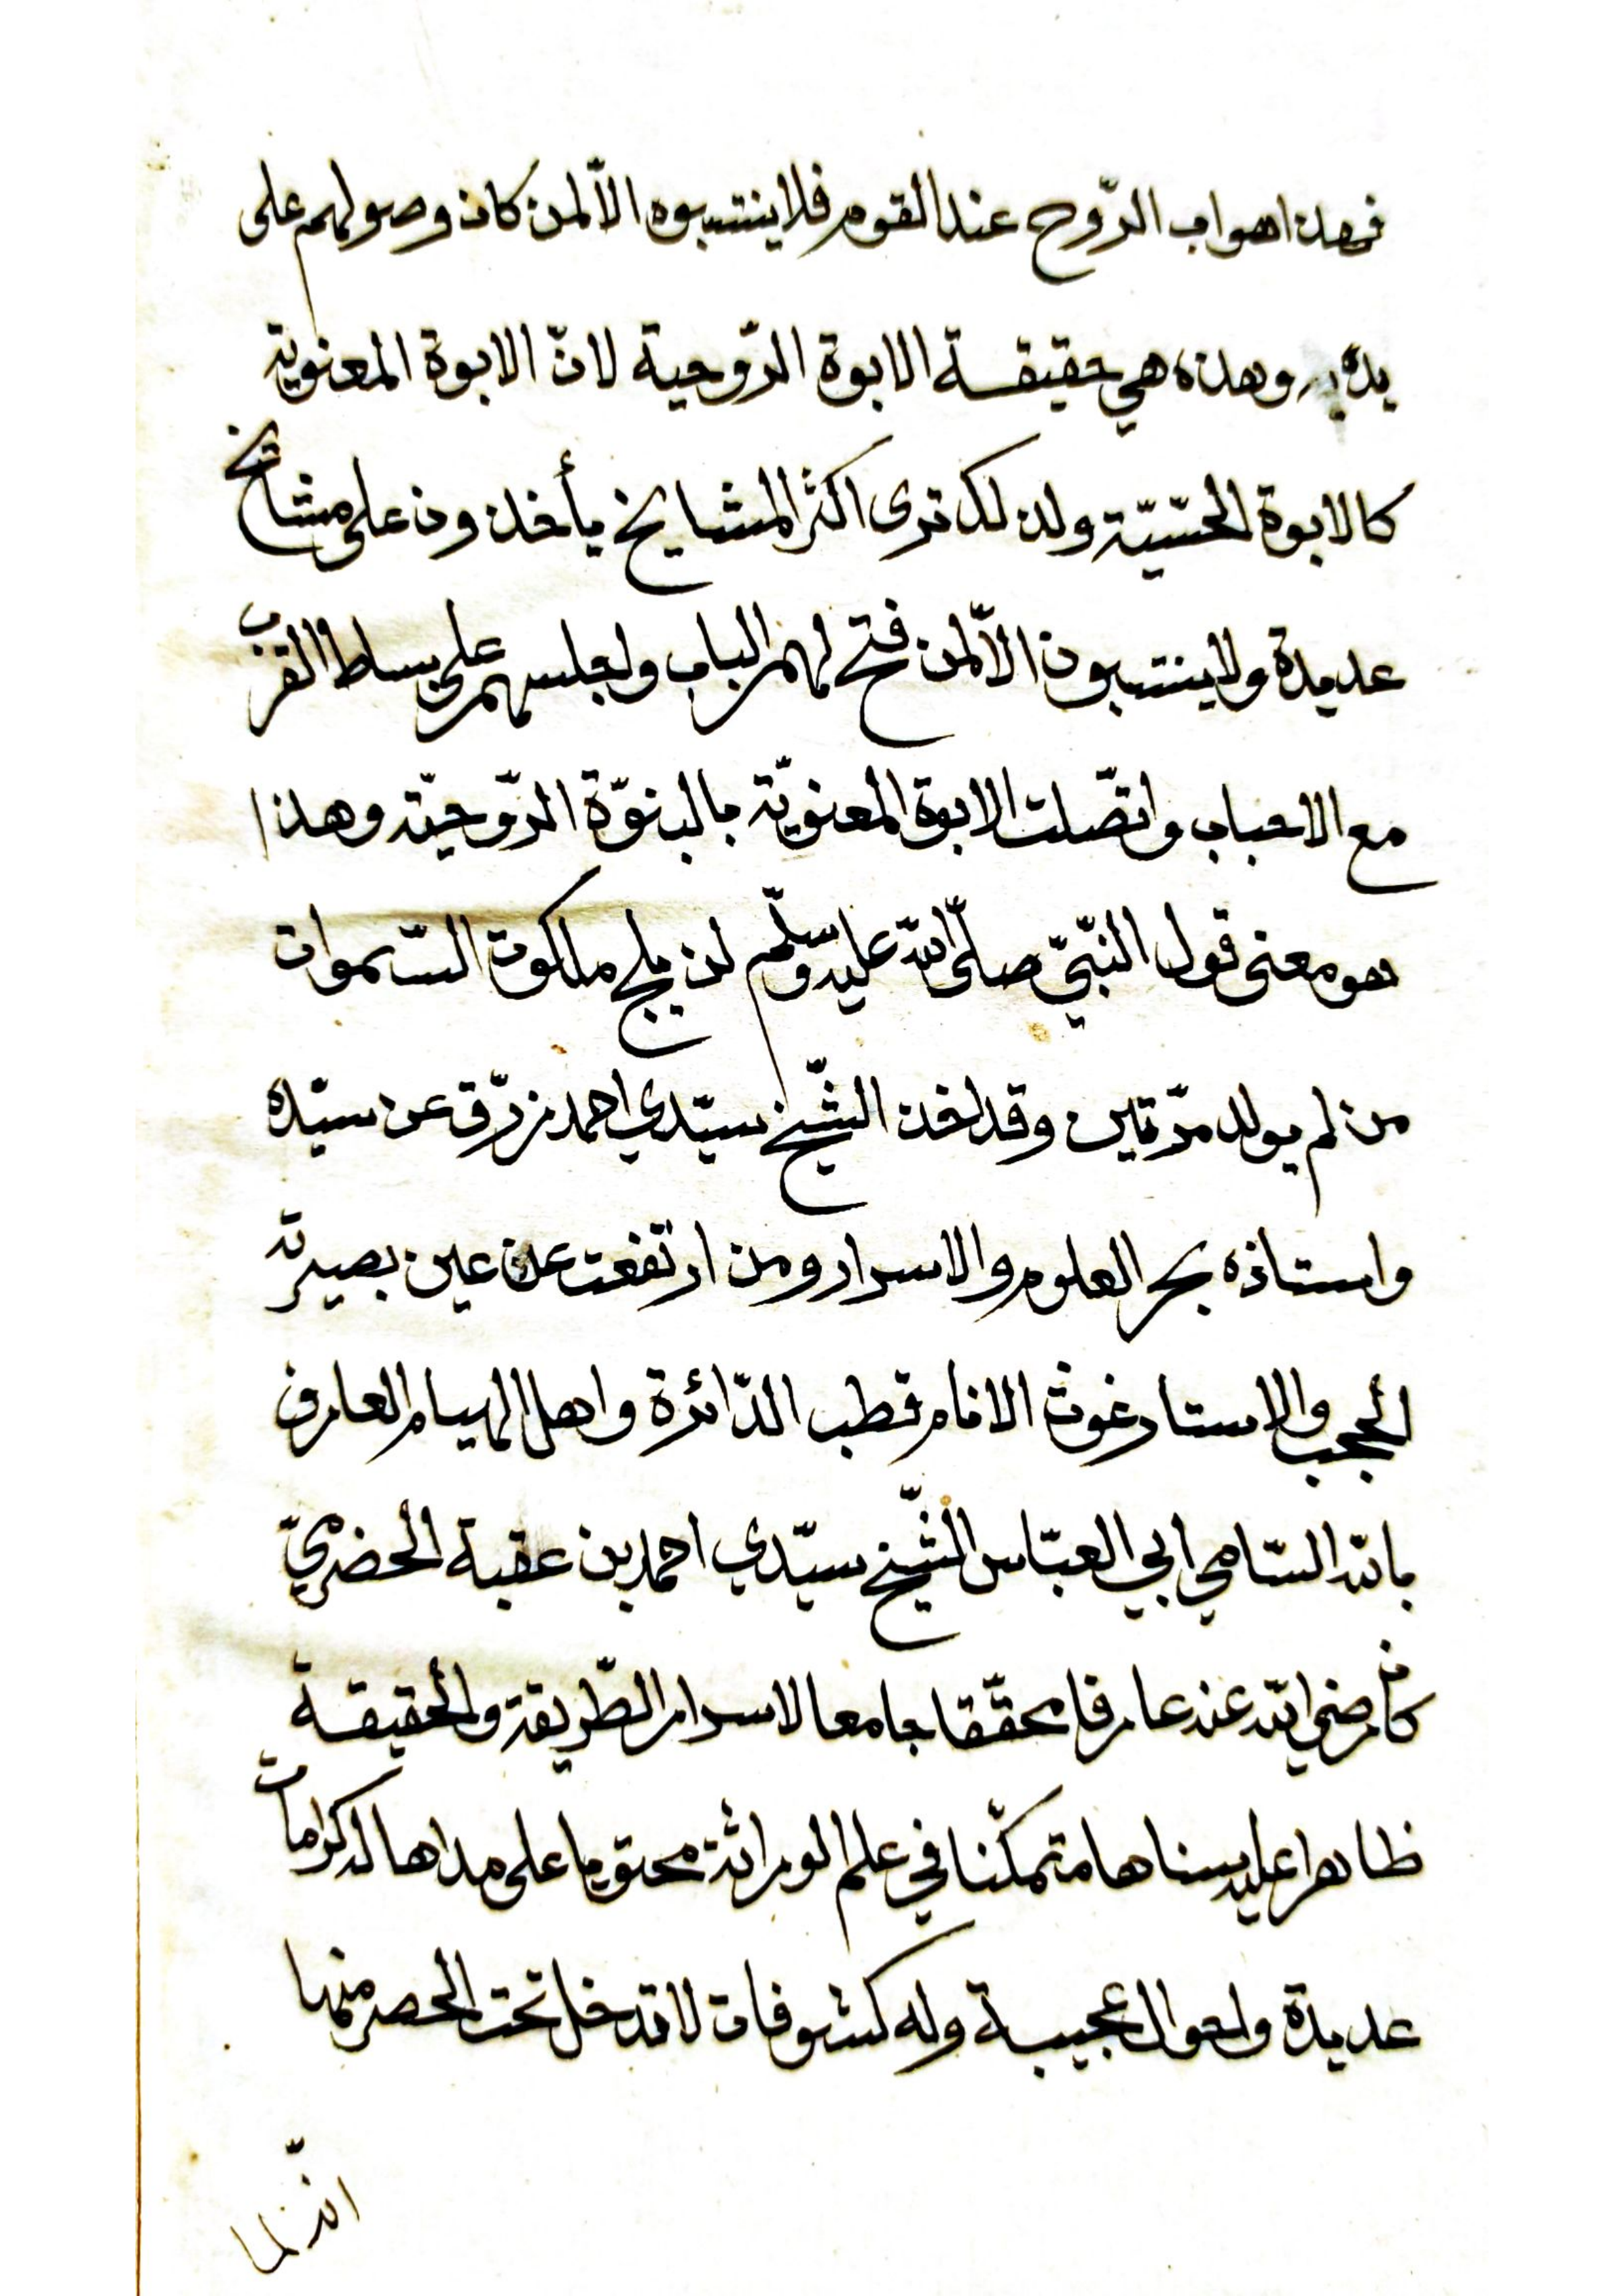 فهذا هو اب الرّوح عند القوم فلا ينتسبوه الّا لمن كان وصولهم على
يديه وهذه هي حقيقة الابوة الرّوحية لانّ الابوة المعنوية
كالابوة الحسّيّة ولذلك ترى اكثر المشايخ يأخذون على مشائخ
عديدة ولا ينتسبون الّا لمن فتح لهم الباب واجلسهم على بساط القرب
مع الاحباب واتّصلت الابوة المعنويّة بالبنوّة الرّوحيّة وهذا
هو معنى قول النّبيّ صلّى الله عليه وسلّم لن يلج ملكوت السّموات
من لم يولد مرّتين وقد اخذ الشّيخ سيّدي احمد زرّق عن سيّده
واستاذه بحر العلوم والاسرار ومن ارتفعت عن عين بصيرته
الحجب والاستار غوث الانام قطب الدّائرة واهل الهيام العارف
بالله السّامي ابي العبّاس الشّيخ سيّدي احمد بن عقبة الحضرميّ
كان رضي الله عنه عارفا محقّقا جامعا لاسرار الطّريقة والحقيقة
ظاهرا عليه سناها متمكّنا في علم الوراثة محتويا على مداها له كرامات
عديدة واحوال عجيبة وله كشوفات لا تدخل تحت الحصر منها
انّه لما